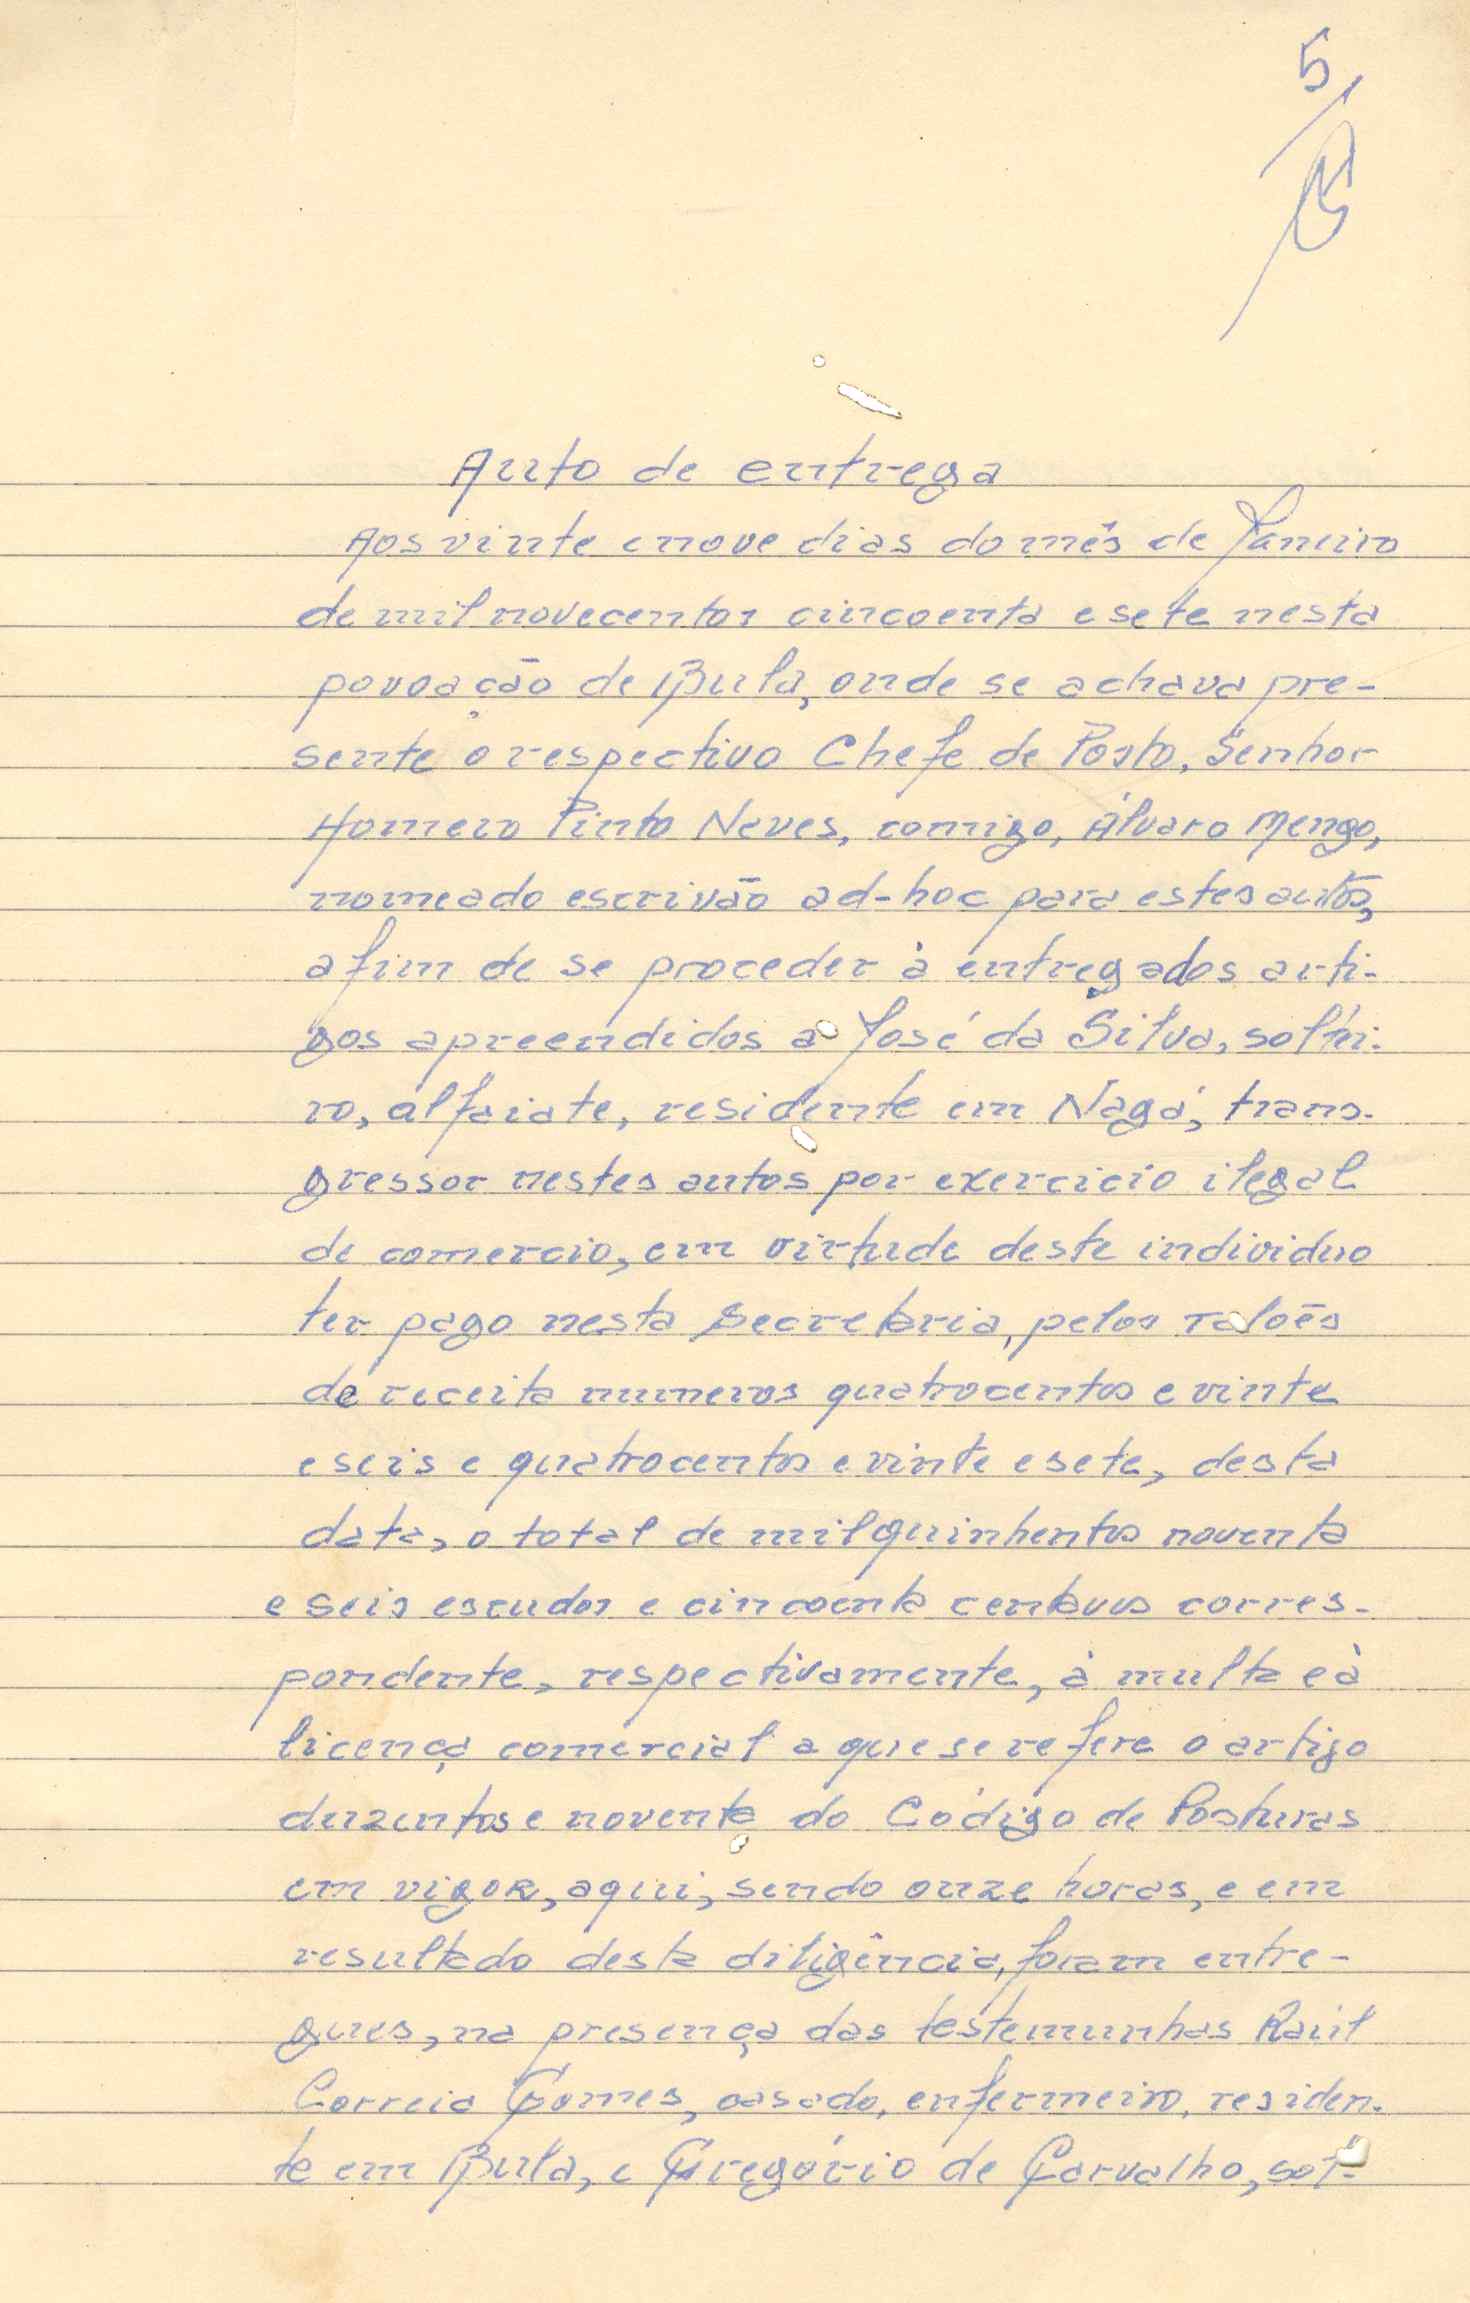 5
Auto de entrega
Aos vinte e nove dias do mês de Janeiro
de mil novecentos cincoenta e sete nesta
povoação de Bula, onde se achava pre-
sente o respectivo Chefe de Posto, Senhor
Homero Pinto Neves, comigo, Álvaro Mengo,
nomeado escrivão ad-hoc para estes autos,
afim de se proceder à entrega dos arti-
gos apreendidos a José da Silva, soltei-
ro, alfaiate, residente em Nagá, trans-
gressor nestes autos por exercicio ilegal
de comercio, em virtude deste individuo
ter pago nesta Secretaria, pelos talões
de receita numeros quatrocentos e vinte
e seis e quatrocentos e vinte e sete, desta
data, o total de mil quinhentos noventa
e seis escudos e cincoenta centavos corres-
pondente, respectivamente, à multa e à
licença comercial a que se refere o artigo
duzentos e noventa do Código de Posturas
em vigor, aqui, sendo onze horas, e em
resultado desta diligência, foram entre-
gues, na presença das testemunhas Raúl
Correia Gomes, casado, enfermeiro, residen-
te em Bula, e Gregório de Carvalho, sol-